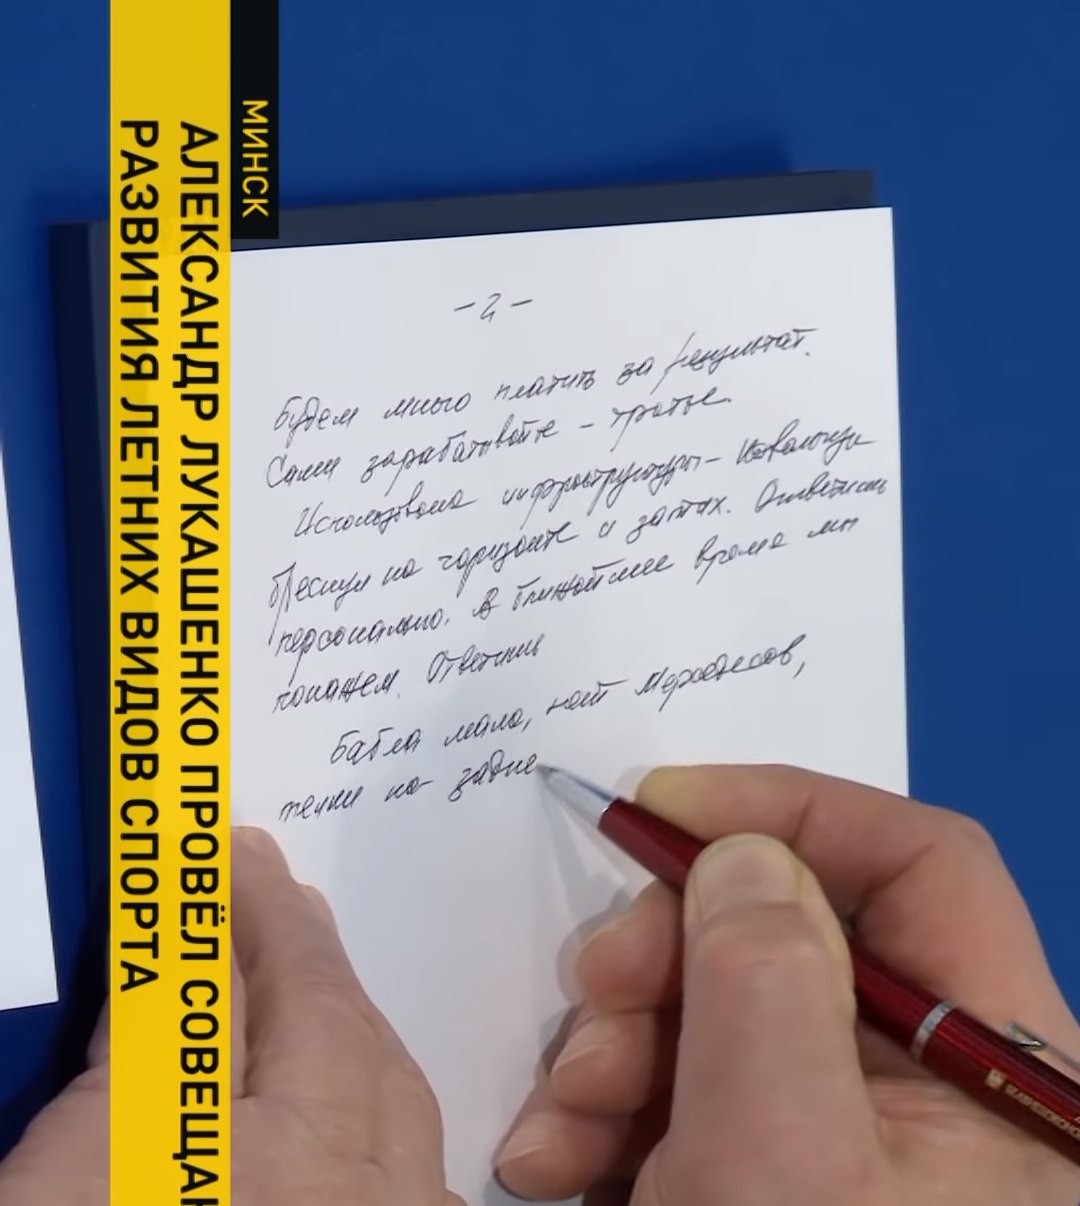 МИНСК
АЛЕКСАНДР ЛУКАШЕНКО ПРОВЁЛ СОВЕЩАН
РАЗВИТИЯ ЛЕТНИХ ВИДОВ СПОРТА
- 2 -
Будем много платить за результат.
Сами зарабатывайте - третье.
инфраструктуры -
на горизонте и затих. Ответили
персонально. В ближайшее время мы
покажем. Ответите
Бабла мало, нет Мерседесов,
телки на задне